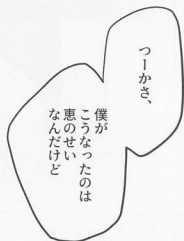 つーかさ、
僕が
こうなったのは
恵のせい
なんだけど